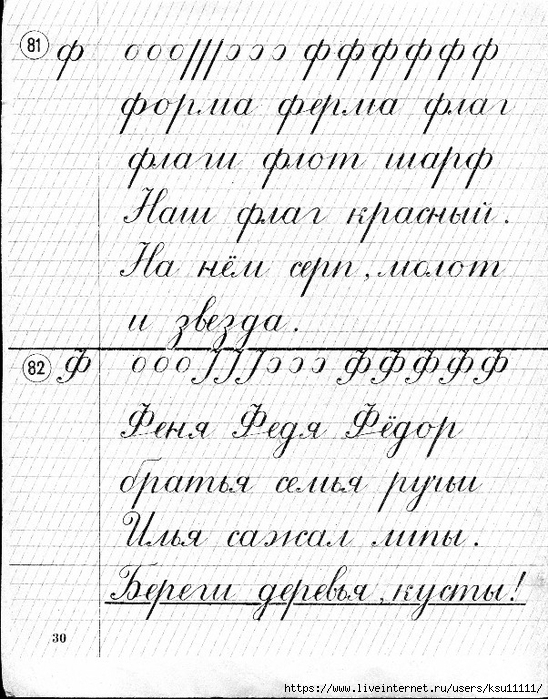 81 ф о о о / / / ɔ ɔ ɔ ф ф ф ф ф ф
форма ферма флаг
флаги флот шарф
Наш флаг красный.
На нём серп, молот
и звезда.
82 Ф о о о J J J ɔ ɔ ɔ Ф Ф Ф Ф Ф
Феня Федя Фёдор
братья семья ручьи
Илья сажал липы.
Береги деревья, кусты!
30
https://www.liveinternet.ru/users/ksu11111/